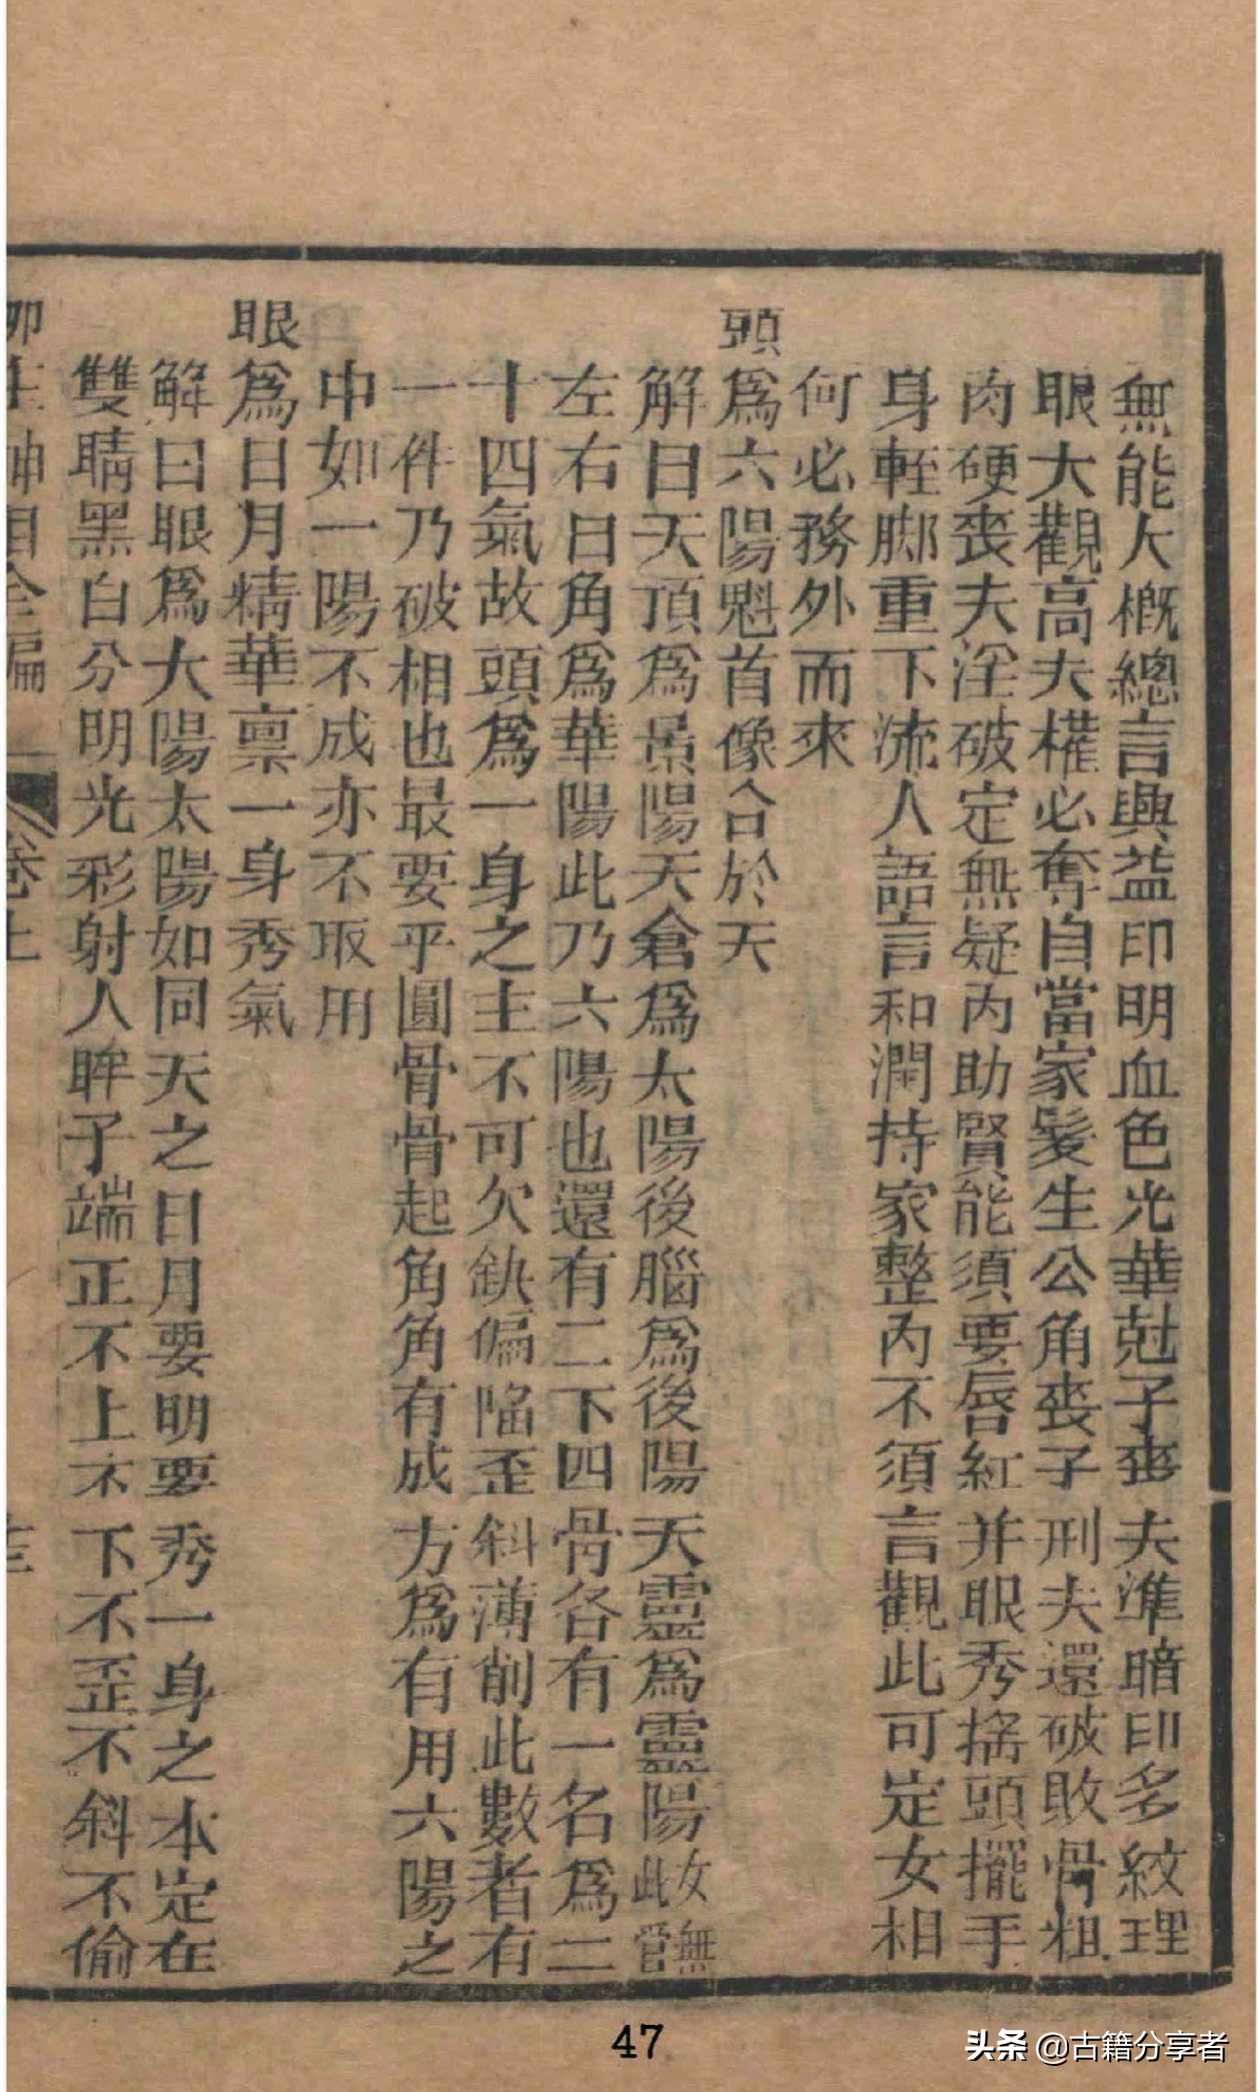 無能大槪總言興益印明血色光華尅子喪夫準暗印多紋理
眼大觀高夫權必奪自當家髮生公角喪子刑夫還破敗骨粗
肉硬喪夫淫破定無疑內助賢能須要唇紅并眼秀搖頭擺手
身輕脚重下流人語言和潤持家整內不須言觀此可定女相
何必務外而來
頭爲六陽魁首像合於天
解曰天頂爲景陽天倉爲太陽後腦爲後陽天靈爲靈陽女無此嘗
左右日角爲華陽此乃六陽也還有二下四骨各有一名爲二
十四氣故頭爲一身之主不可欠缺偏陷歪斜薄削此數者有
一件乃破相也最要乎圓骨骨起角角有成方爲有用六陽之
中如一陽不成亦不取用
眼爲日月精華禀一身秀氣
解曰眼爲大陽太陽如同天之日月要明要秀一身之本定在
雙睛黑白分明光彩射人眸子端正不上不下不歪不斜不偷
柳庄神相全編 卷上
47
头条 @古籍分享者